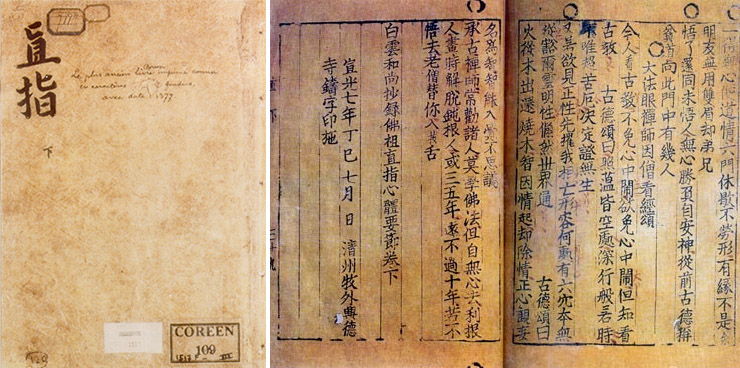 直指
下
Coréen
Le plus ancien livre imprimé connu
en caractères fondus,
avec date : 1377
COREEN
109
一得無心便道情六門休歇不勞形有緣不是
朋友無用雙眉却弟兄
悟了還同未悟人無心勝負自安神從前古德稱
貧道向此門中有幾人
大法眼禪師因僧看經頌
今人看古教不免心中鬧欲免心中鬧但知看
古教 古德頌曰蘊皆空處深行般若時
唯招苦后決定證無生
又 若欲見正性先 我相亡形容何處有六穴本無
豁爾靈明性 世界通 古德頌曰
火從木出還燒木智因情起却除情正心觀妄
名爲智智能入慧不思議
承古禪師常勸諸人莫學佛法但自無心去利根
人晝時解脫鈍根人或三五年遠不過十年若不
悟去老僧替你入拔舌
白雲和尙抄錄佛祖直指心體要節卷下
宣光七年丁巳七月 日 淸州牧外興德
寺鑄字印施